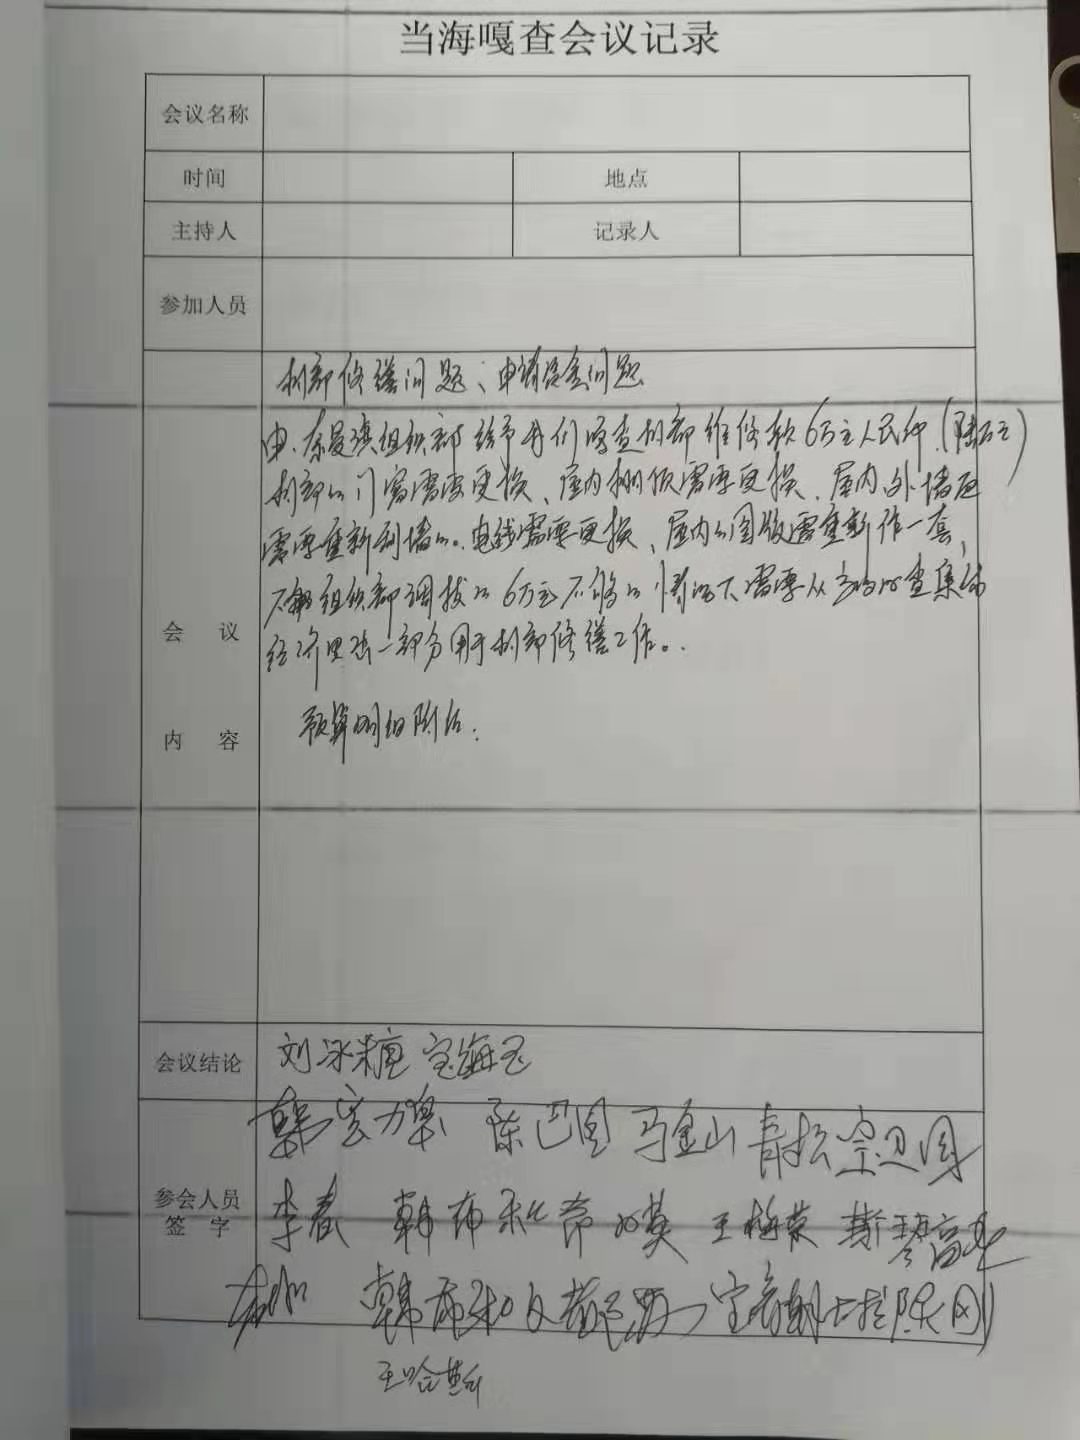 当海嘎查会议记录
会议名称
时间 地点
主持人 记录人
参加人员
会议内容
村部修缮问题、申请资金问题
由奈曼旗组织部给予我们嘎查村部维修款6万元人民币(陆万元)
村部的门窗需要更换、屋内棚顶需要更换、屋内外墙面
需要重新刮墙的。电线需要更换、屋内的图版需重新作一套、
组织部调拨的6万元不够的情况下需要从当海嘎查集体
经济里出一部分用于村部修缮工作。
预算明细附后.
会议结论
刘冰糖 宝海玉
参会人员签字
韩宝力皋 陈巴图 马金山 青松 宝巴图
李春 韩布和 王梅荣 斯琴高娃
韩布和 陈刚
王哈斯